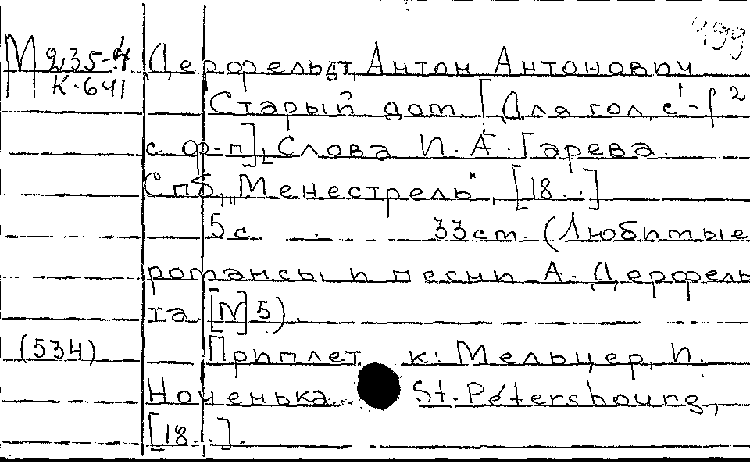 М 235-4 Дерфельдт, Антон Антонович
К-641
Старый дом [Для гол. с¹-f²
с ф-п], Слова И. А. Гарева.
Спб, „Менестрель", [18..]
5 с. 33 см. (Любимые
романсы и песни А. Дерфель
та [№] 5).
(534) Приплет к: Мельцер, И.
Ноченька. St. Pétersbourg,
[18..].